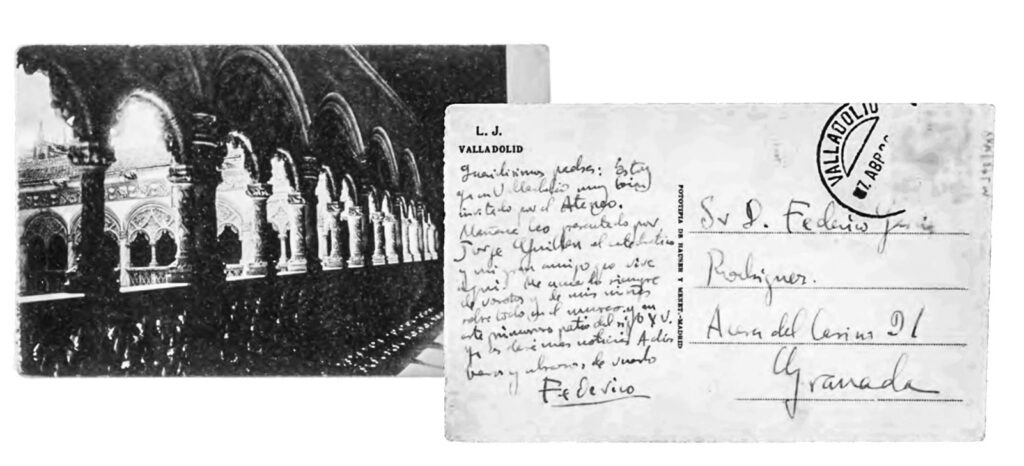 L. J.
VALLADOLID
Queridísimos padres: Estoy
ya en Valladolid muy bien
invitado por el Ateneo.
Mañana leo presentado por
Jorge Guillén el catedrático
y mi gran amigo que vive
aquí. Me acuerdo siempre
de vosotros y de mis niñas
sobre todo en el museo y en
este primoroso patio del siglo XV.
Ya os daré más noticias Adiós
besos y abrazos, de vuestro
Federico
FOTOTIPIA DE HAUSER Y MENET.-MADRID
VALLADOLID
7. ABR
Sr D. Federico García
Rodríguez.
Acera del Casino 31
Granada